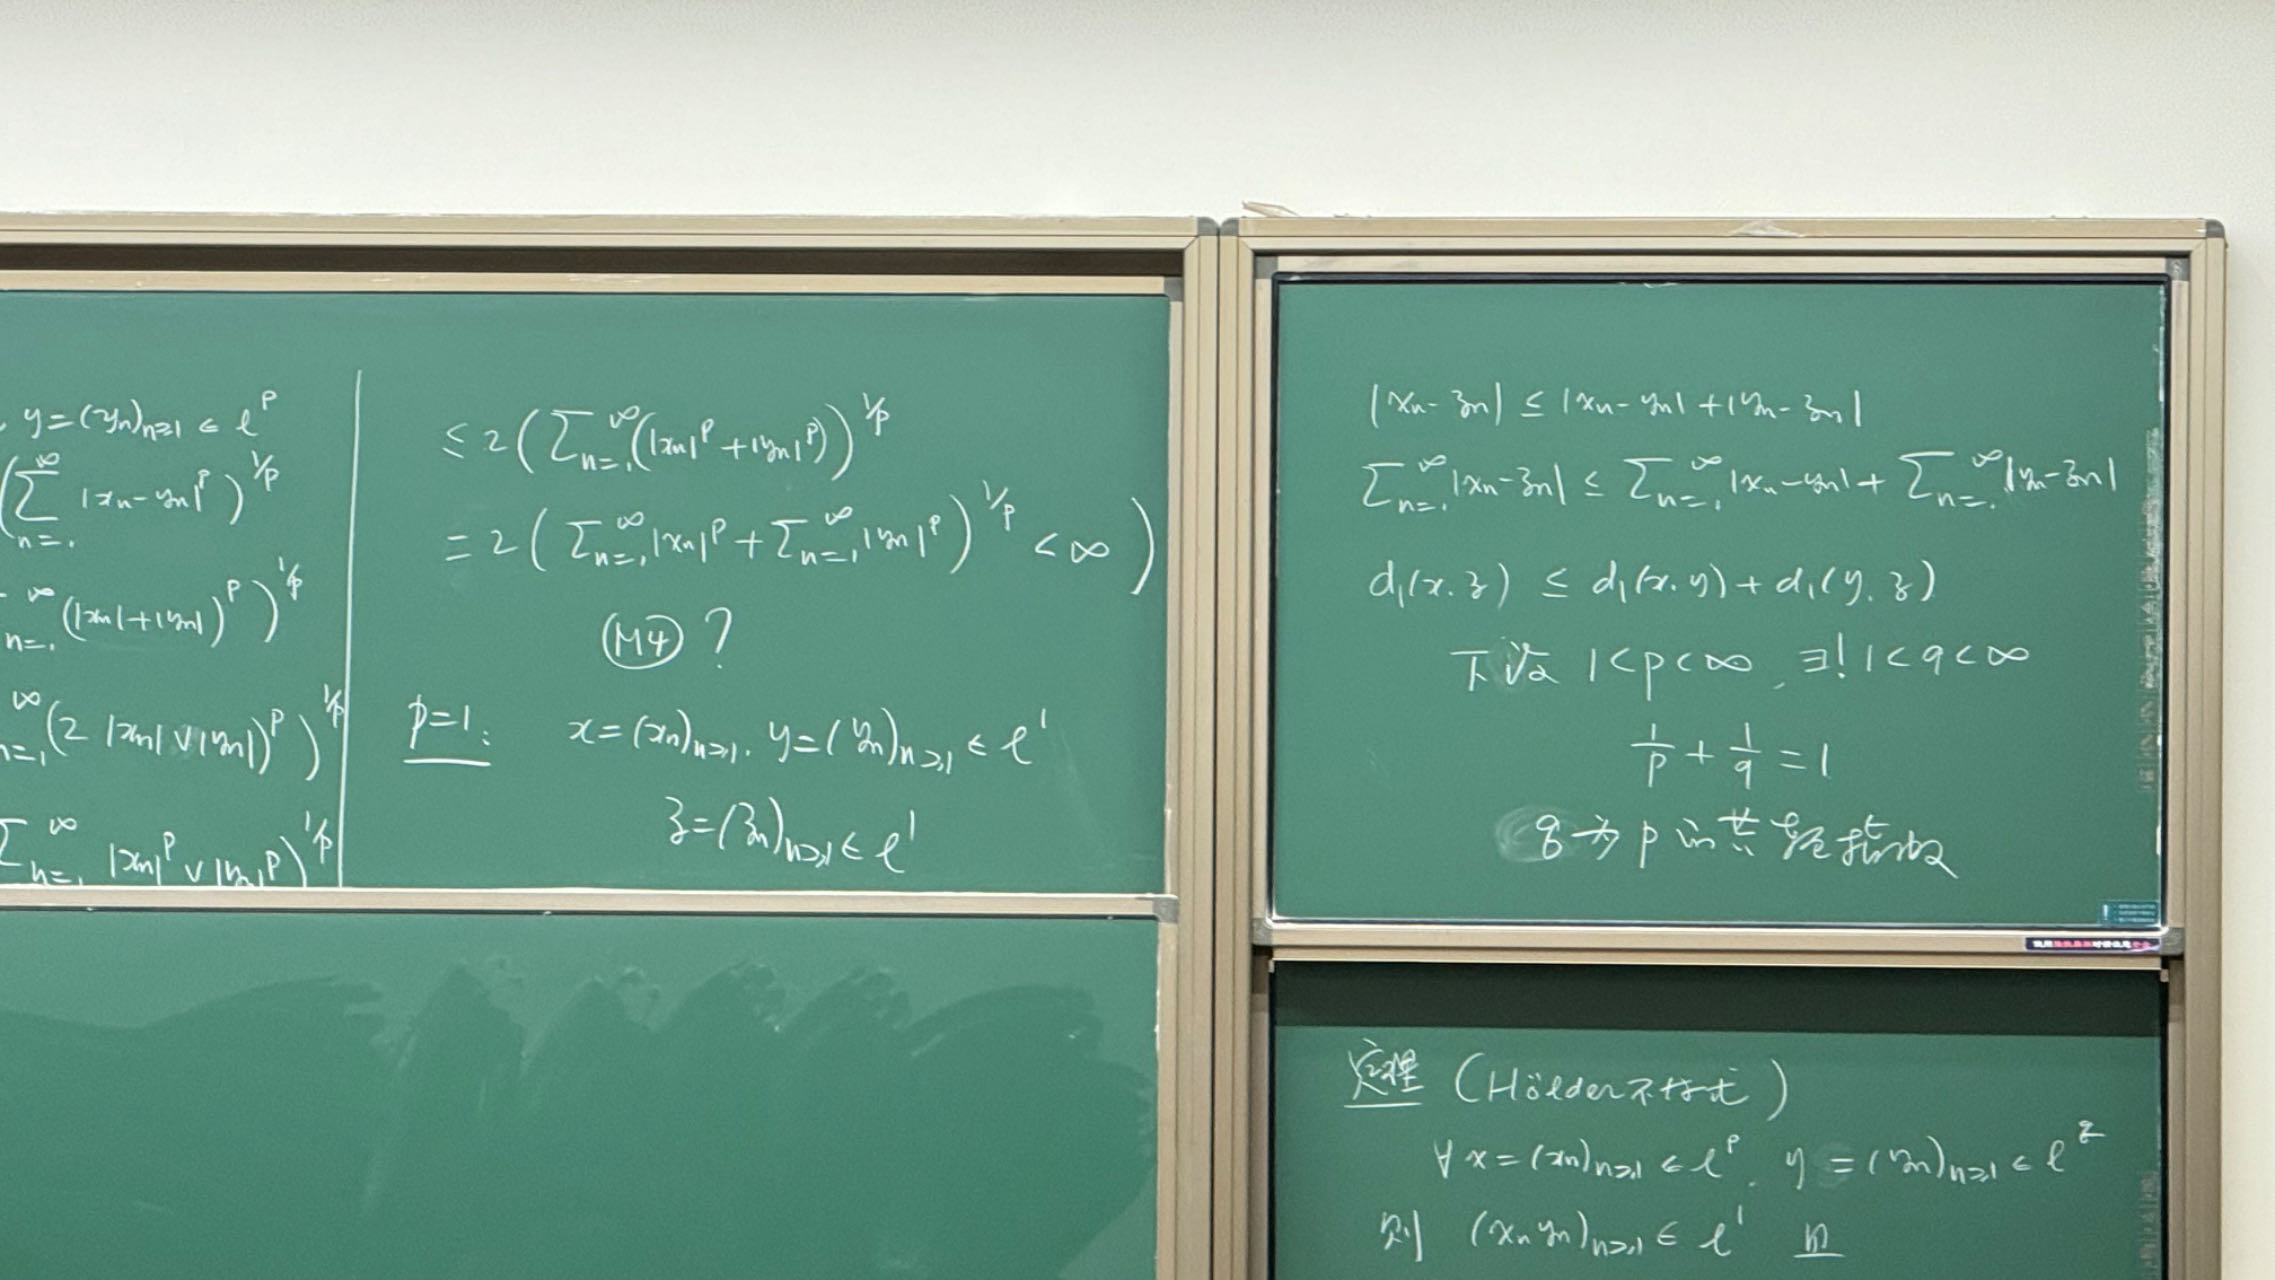 y=(yₙ)ₙ≥₁ ∈ ℓᵖ
(∑_{n=1}^∞ |xₙ-yₙ|ᵖ)^{1/p}
_{n=1}^∞ (|xₙ|+|yₙ|)ᵖ)^{1/p}
_{n=1}^∞ (2 |xₙ|∨|yₙ|)ᵖ)^{1/p}
∑_{n=1}^∞ |xₙ|ᵖ ∨ |yₙ|ᵖ)^{1/p}
≤ 2(∑_{n=1}^∞ (|xₙ|ᵖ+|yₙ|ᵖ))^{1/p}
= 2(∑_{n=1}^∞ |xₙ|ᵖ + ∑_{n=1}^∞ |yₙ|ᵖ)^{1/p} < ∞)
(M4) ?
p=1: x=(xₙ)ₙ≥₁, y=(yₙ)ₙ≥₁ ∈ ℓ¹
z=(zₙ)ₙ≥₁ ∈ ℓ¹
|xₙ-zₙ| ≤ |xₙ-yₙ|+|yₙ-zₙ|
∑_{n=1}^∞ |xₙ-zₙ| ≤ ∑_{n=1}^∞ |xₙ-yₙ| + ∑_{n=1}^∞ |yₙ-zₙ|
d₁(x,z) ≤ d₁(x,y)+d₁(y,z)
下设 1<p<∞, ∃! 1<q<∞
1/p + 1/q = 1
q 为 p 的共轭指数
定理 (Hölder不等式)
∀x=(xₙ)ₙ≥₁ ∈ ℓᵖ, y=(yₙ)ₙ≥₁ ∈ ℓ^q
则 (xₙyₙ)ₙ≥₁ ∈ ℓ¹ 且